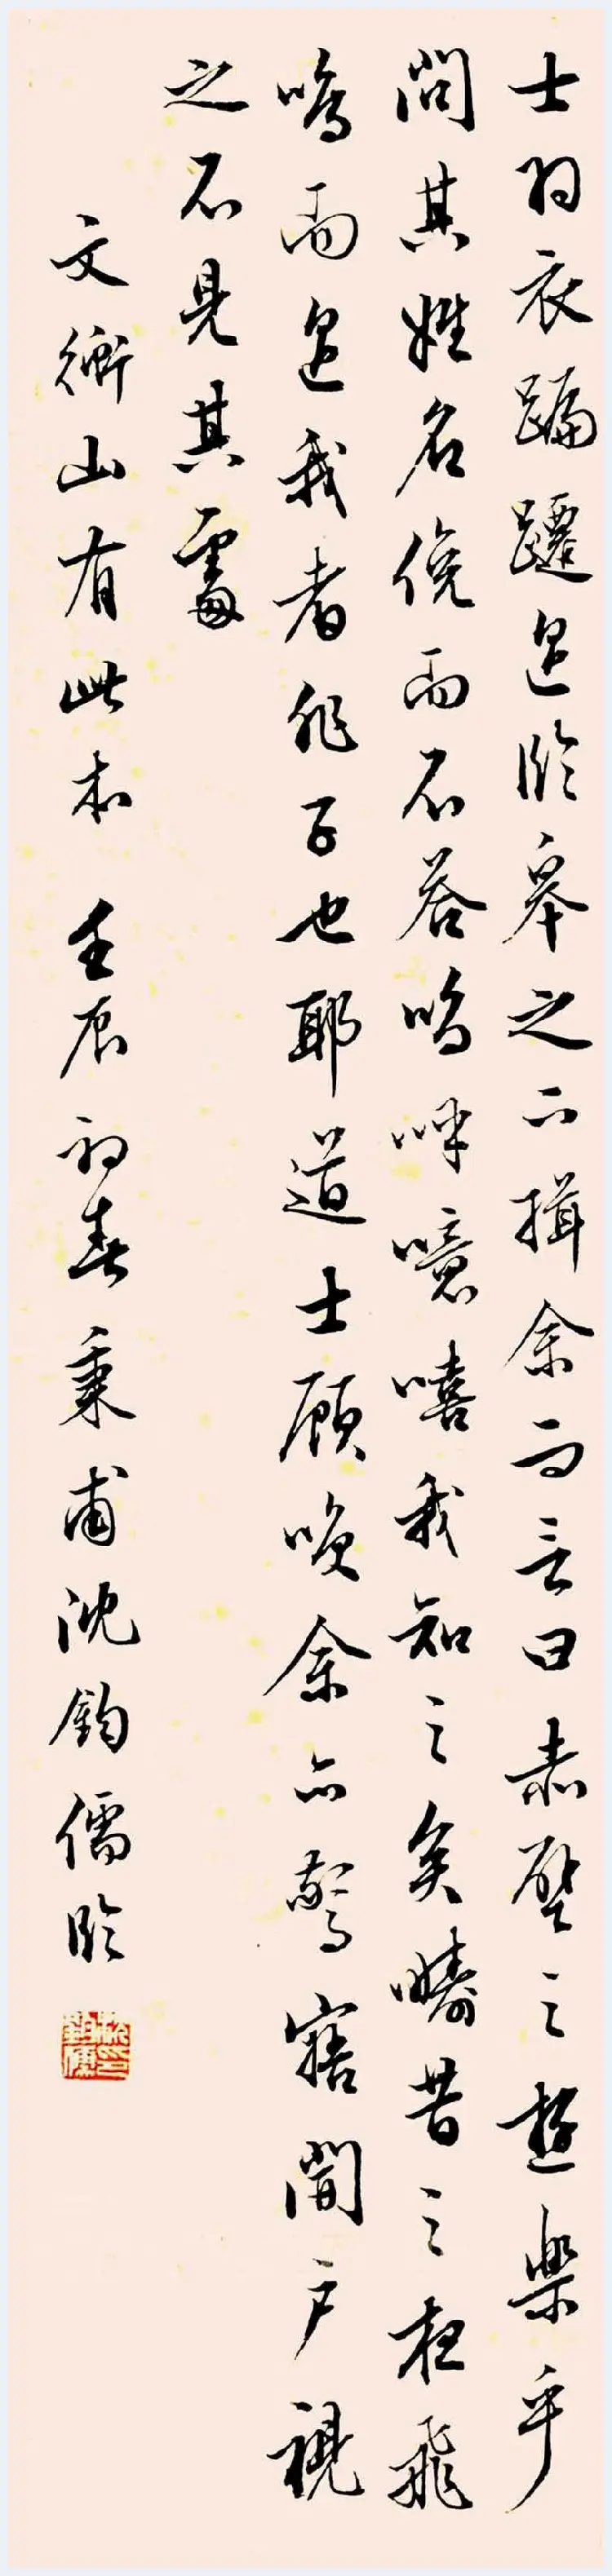 士羽衣蹁躚過臨皋之下揖余而言曰赤壁之遊樂乎
問其姓名俛而不答嗚呼噫嘻我知之矣疇昔之夜飛
鳴而過我者非子也耶道士顧咲余亦驚寤開戶視
之不見其處
文衡山有此本 壬辰初春秉甫沈鈞儒臨
沈印鈞儒